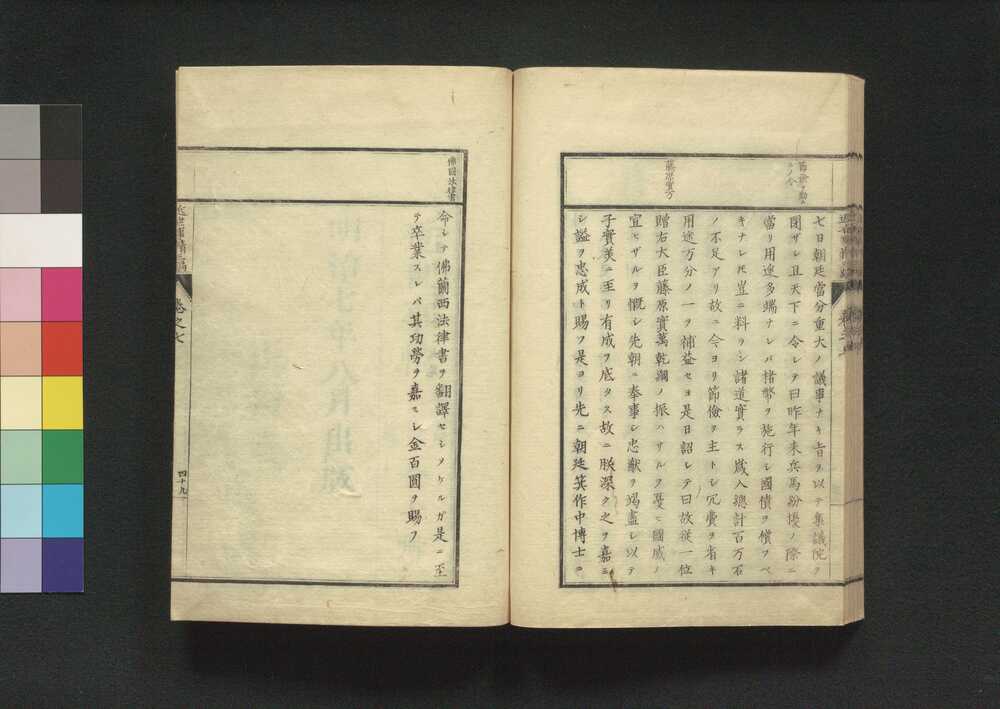 節儉ヲ勸ムノ令
藤原實萬
七日朝廷當分重大ノ議事ナキ旨ヲ以テ集議院ヲ
閉ザレ且天下ニ令レテ曰昨年來兵馬紛擾ノ際ニ
當リ用途多端ナレバ楮幣ヲ施行レ國債ヲ償フベ
キナレ𪜈豈ニ料ランン諸道實ラス歲入總計百万石
ノ不足アリ故ニ今ヨリ節儉ヲ主トレ冗費ヲ省キ
用途万分ノ一ヲ補益セヨ是日詔レテ曰故從一位
贈右大臣藤原實萬乾綱ノ振ハサルヲ憂ヒ國威ノ
宣ヒザルヲ慨レ先朝ニ奉事レ忠獻ヲ竭盡レ以テ
子實美ニ至リ有成ヲ底タス故ニ朕深ク之ヲ嘉ミ
シ謚ヲ忠成ト賜フ是ヨリ先ニ朝廷箕作中博士ニ
佛國法律書
命レテ佛蘭西法律書ヲ翻譯セシメケルガ是ニ至
テ卒業スレバ其功勞ヲ嘉ミレ金百圓ヲ賜フ
卷之七
四十九